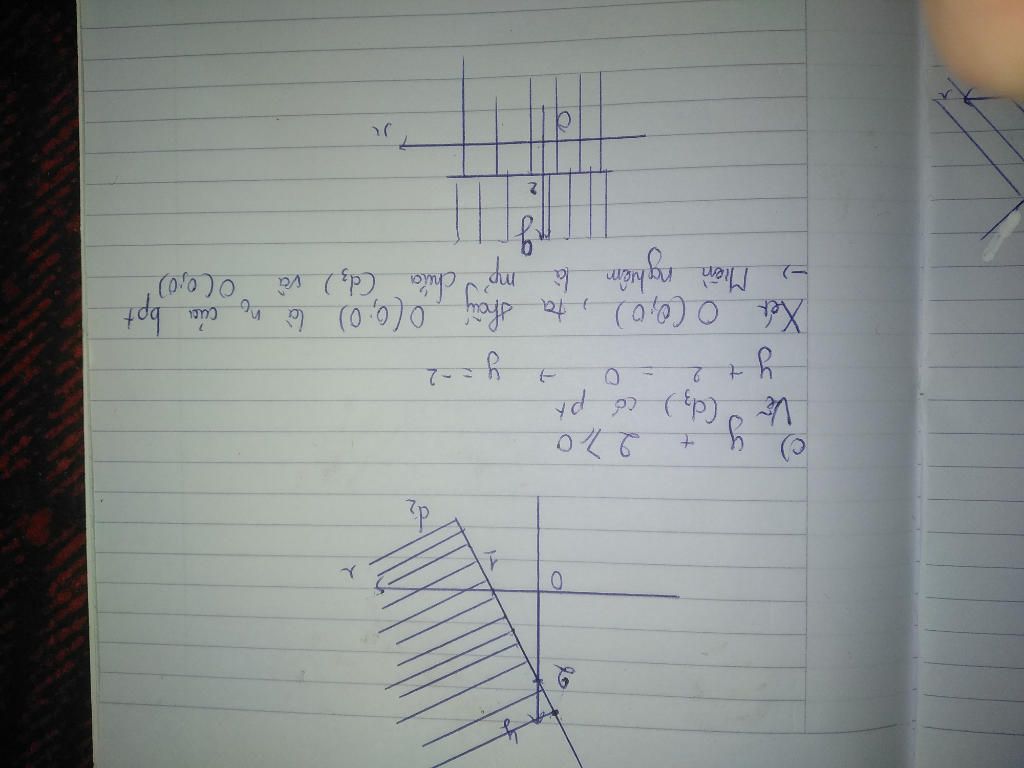 y
2
O
1
x
d₂
c) y + 2 ⩾ 0
Vẽ (d₃) có pt
y + 2 = 0 → y = -2
Xét O(0;0), ta thấy O(0;0) là n₀ của bpt
→ Miền nghiệm là mp chứa (d₃) và O(0;0)
y
2
O
x
x